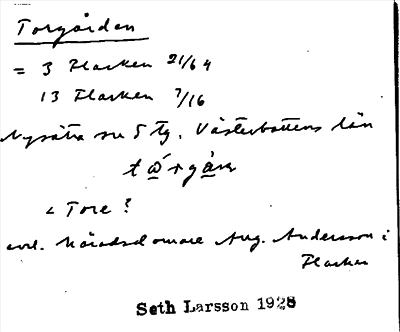 Torgården
= 3 Flarken 21/64
13 Flarken 7/16
Nysätra sn 5 tg. Västerbottens län
< Tore ?
enl. Häradsdomare Aug. Andersson i
Flarken
Seth Larsson 1928